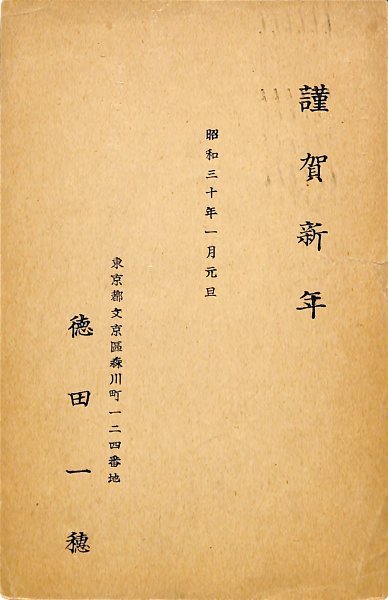 謹賀新年
昭和三十年一月元旦
東京都文京區森川町一二四番地
徳田一穂